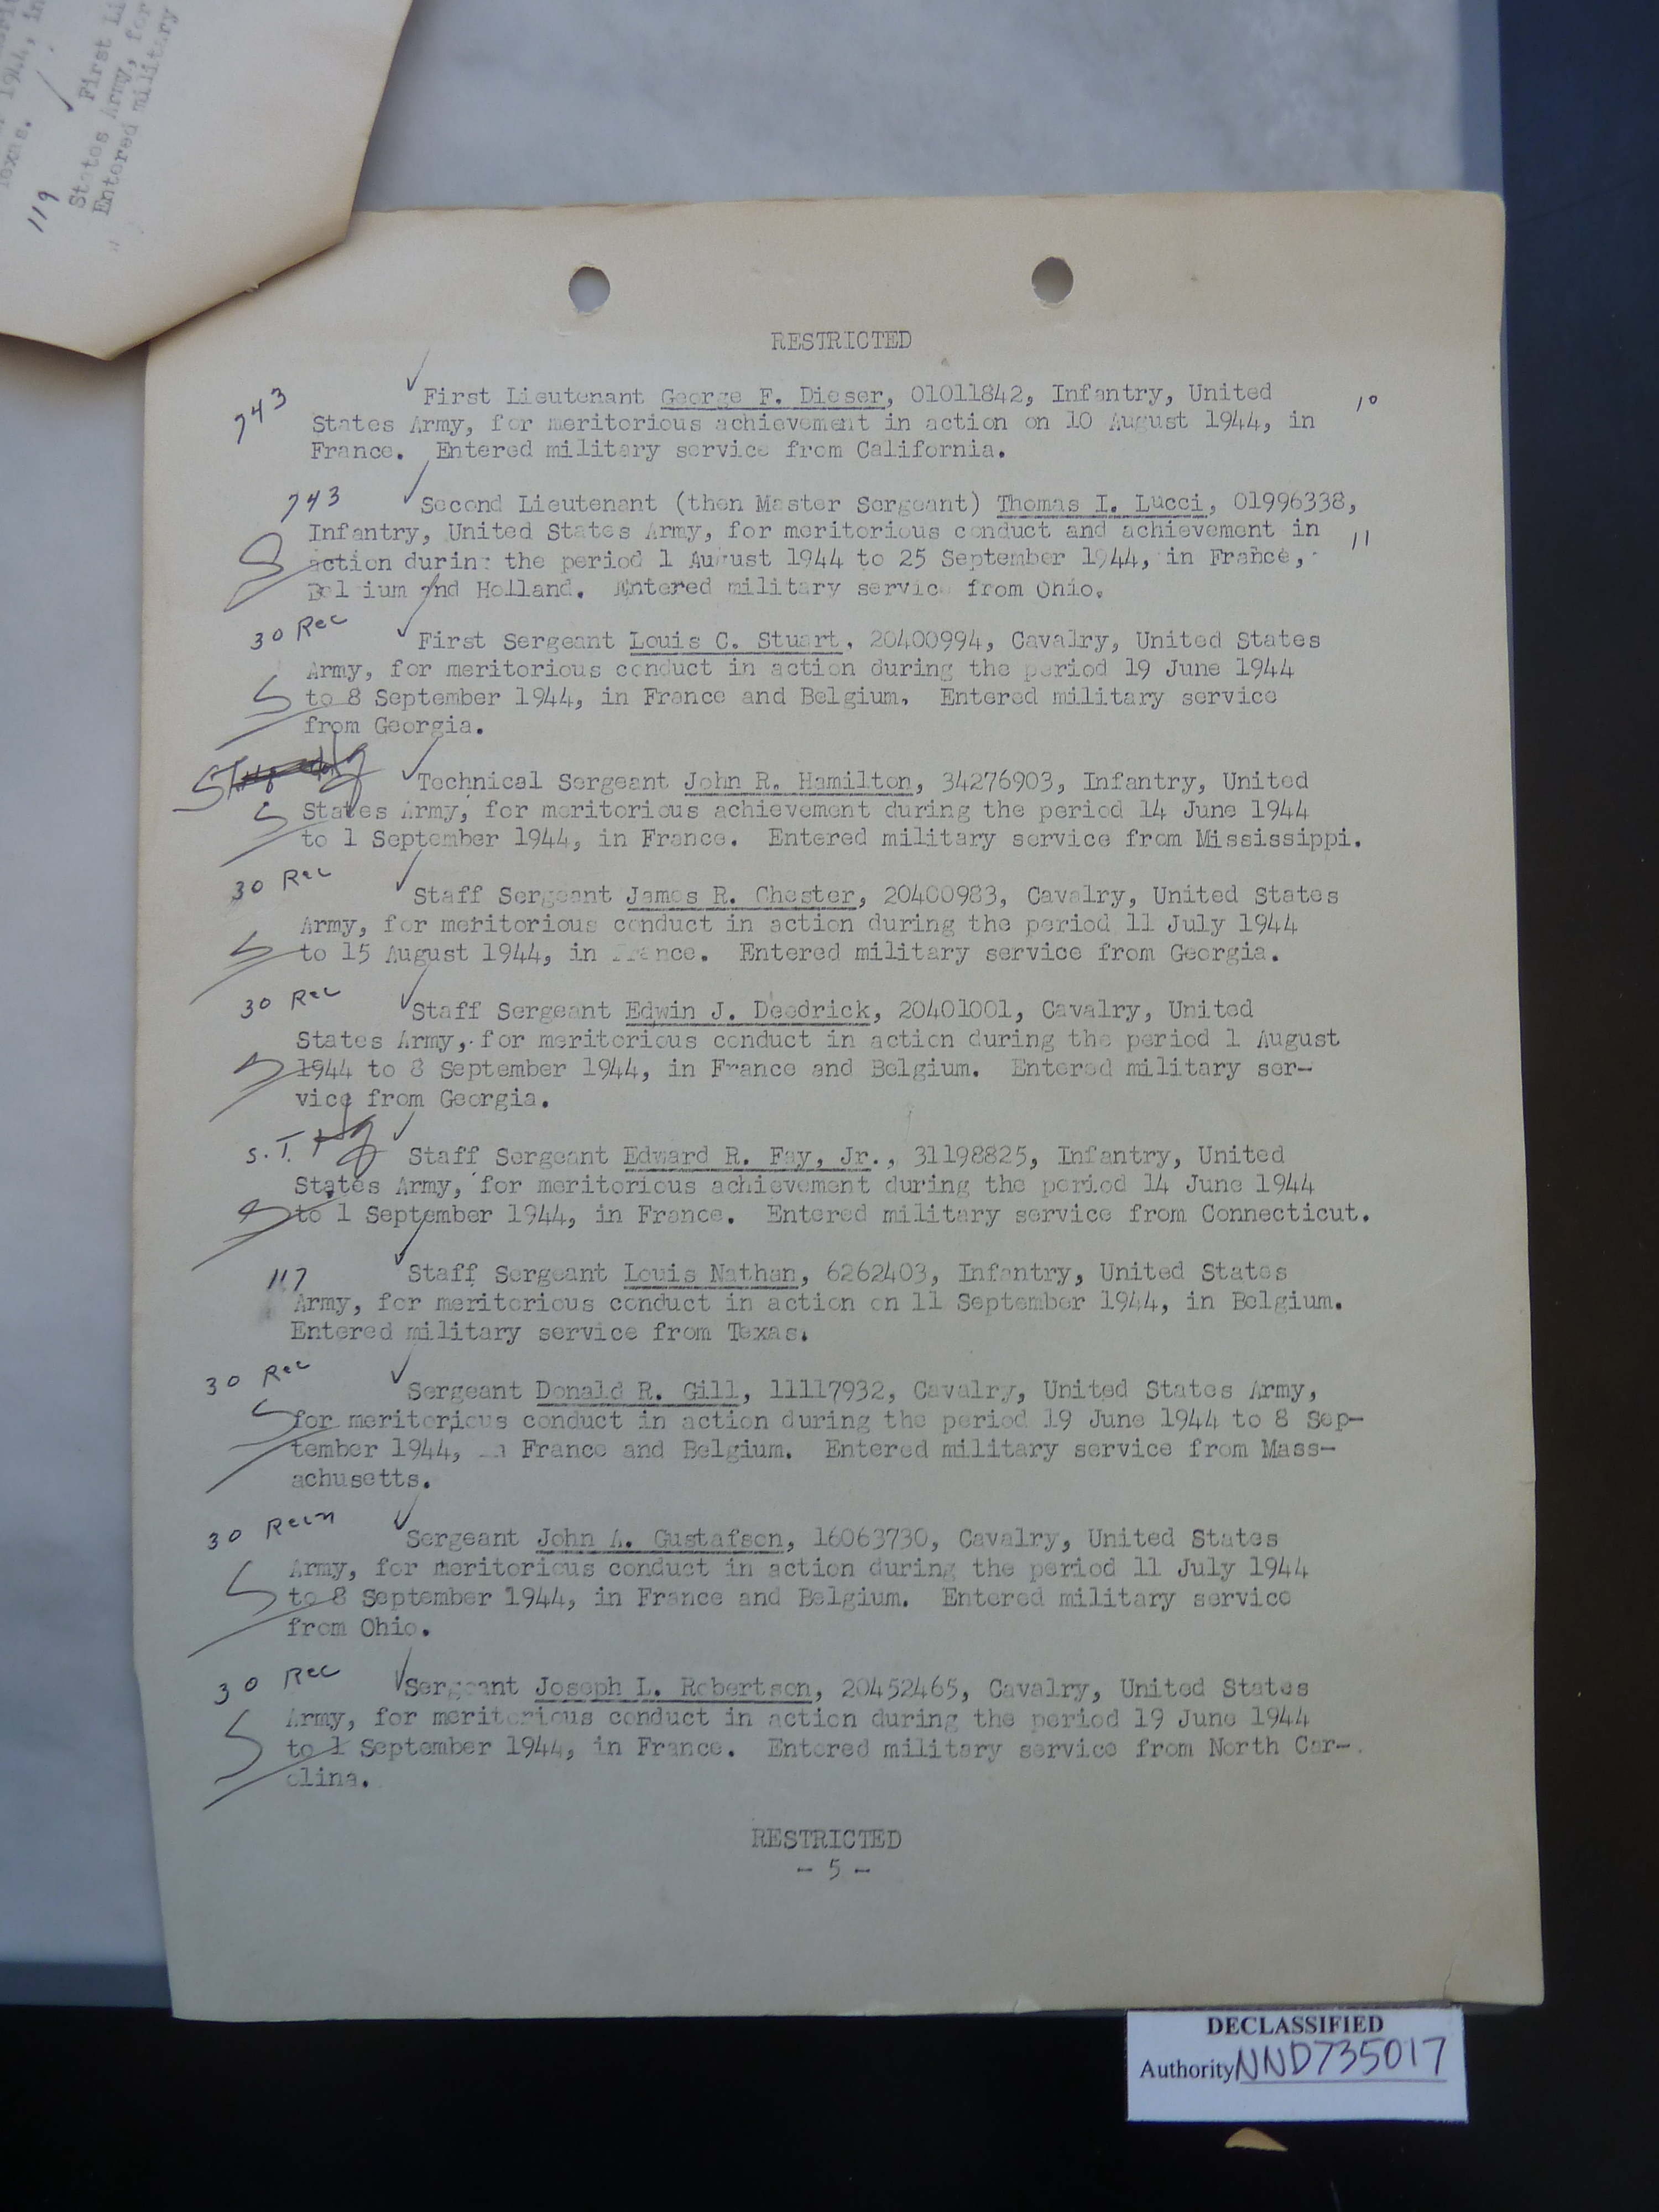 1944, in
Texas.
119
First Li
States Army, for
Entered military
RESTRICTED
743
First Lieutenant George F. Dieser, 01011842, Infantry, United
10
States Army, for meritorious achievement in action on 10 August 1944, in
France. Entered military service from California.
743
Second Lieutenant (then Master Sergeant) Thomas I. Lucci, 01996338,
Infantry, United States Army, for meritorious conduct and achievement in
11
action during the period 1 August 1944 to 25 September 1944, in France,
Belgium and Holland. Entered military service from Ohio.
30 Rec
First Sergeant Louis C. Stuart, 20400994, Cavalry, United States
Army, for meritorious conduct in action during the period 19 June 1944
S to 8 September 1944, in France and Belgium. Entered military service
from Georgia.
Technical Sergeant John R. Hamilton, 34276903, Infantry, United
S States Army, for meritorious achievement during the period 14 June 1944
to 1 September 1944, in France. Entered military service from Mississippi.
30 Rec
Staff Sergeant James R. Chester, 20400983, Cavalry, United States
Army, for meritorious conduct in action during the period 11 July 1944
S to 15 August 1944, in France. Entered military service from Georgia.
30 Rec
Staff Sergeant Edwin J. Deedrick, 20401001, Cavalry, United
States Army, for meritorious conduct in action during the period 1 August
S 1944 to 8 September 1944, in France and Belgium. Entered military ser-
vice from Georgia.
S. T. Hq
Staff Sergeant Edward R. Fay, Jr., 31198825, Infantry, United
States Army, for meritorious achievement during the period 14 June 1944
S to 1 September 1944, in France. Entered military service from Connecticut.
117
Staff Sergeant Louis Nathan, 6262403, Infantry, United States
Army, for meritorious conduct in action on 11 September 1944, in Belgium.
Entered military service from Texas.
30 Rec
Sergeant Donald R. Gill, 11117932, Cavalry, United States Army,
S for meritorious conduct in action during the period 19 June 1944 to 8 Sep-
tember 1944, in France and Belgium. Entered military service from Mass-
achusetts.
30 Recn
Sergeant John A. Gustafson, 16063730, Cavalry, United States
Army, for meritorious conduct in action during the period 11 July 1944
S to 8 September 1944, in France and Belgium. Entered military service
from Ohio.
30 Rec
Sergeant Joseph L. Robertson, 20452465, Cavalry, United States
Army, for meritorious conduct in action during the period 19 June 1944
S to 1 September 1944, in France. Entered military service from North Car-
olina.
RESTRICTED
- 5 -
DECLASSIFIED
Authority NND735017